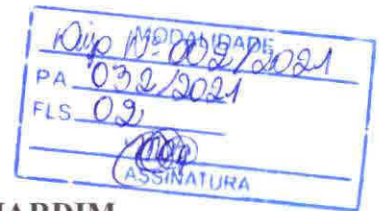 MODALIDADE
Disp Nº 002/2021
PA 032/2021
FLS 02
ASSINATURA
JARDIM